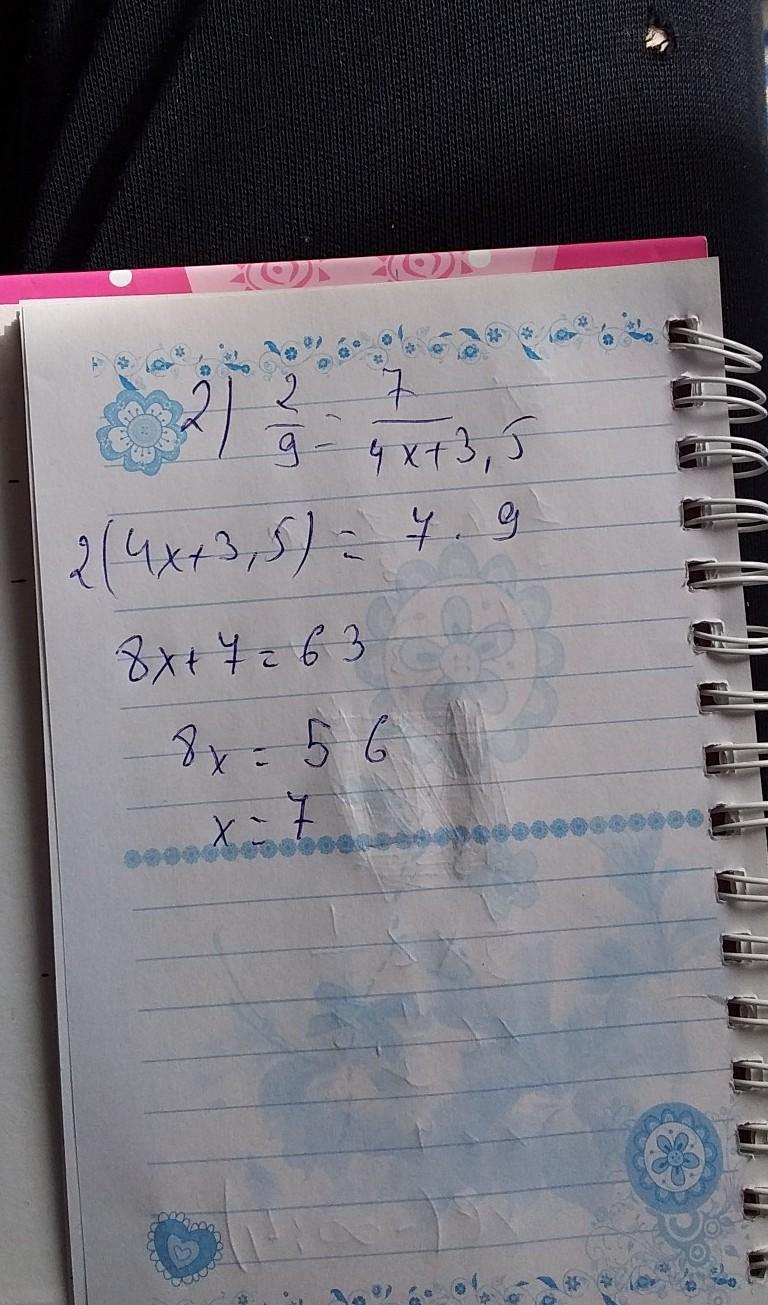 2) 2/9 = 7/(4x+3,5)
2(4x+3,5) = 7 · 9
8x+7=63
8x = 56
x=7